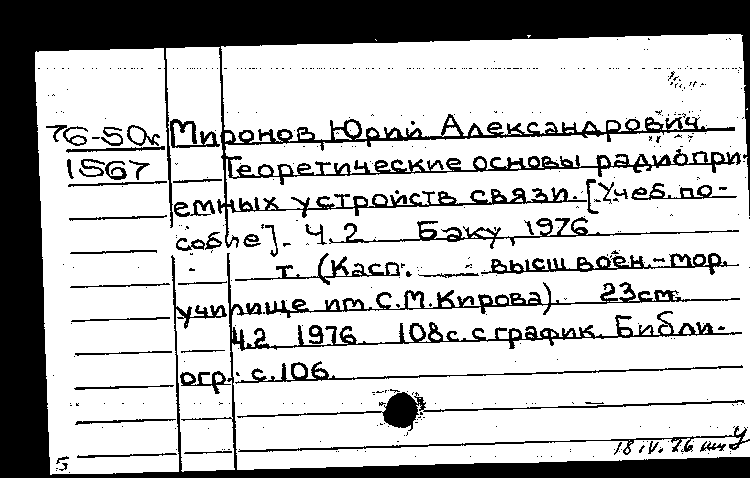 76-50к Миронов, Юрий Александрович.
1567 Теоретические основы радиопри-
емных устройств связи. [Учеб. по-
собие]. Ч.2 Баку, 1976.
т. (Касп. высш воен.-мор.
училище им. С.М.Кирова). 23см.
Ч.2 1976. 108с. с график. Библи-
огр.: с.106.
18 IV. 76
5